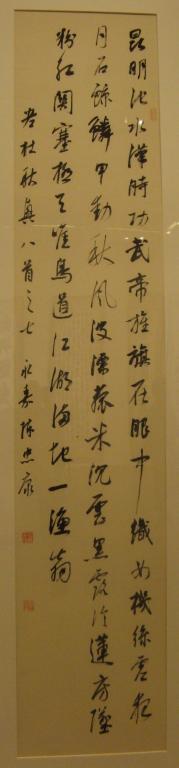 昆明池水漢時功武帝旌旗在眼中織女機絲虛夜
月石鯨鱗甲動秋風波漂菰米沉雲黑露冷蓮房墜
粉紅關塞極天唯鳥道江湖滿地一漁翁
老杜秋興八首之七 永嘉陳忠康